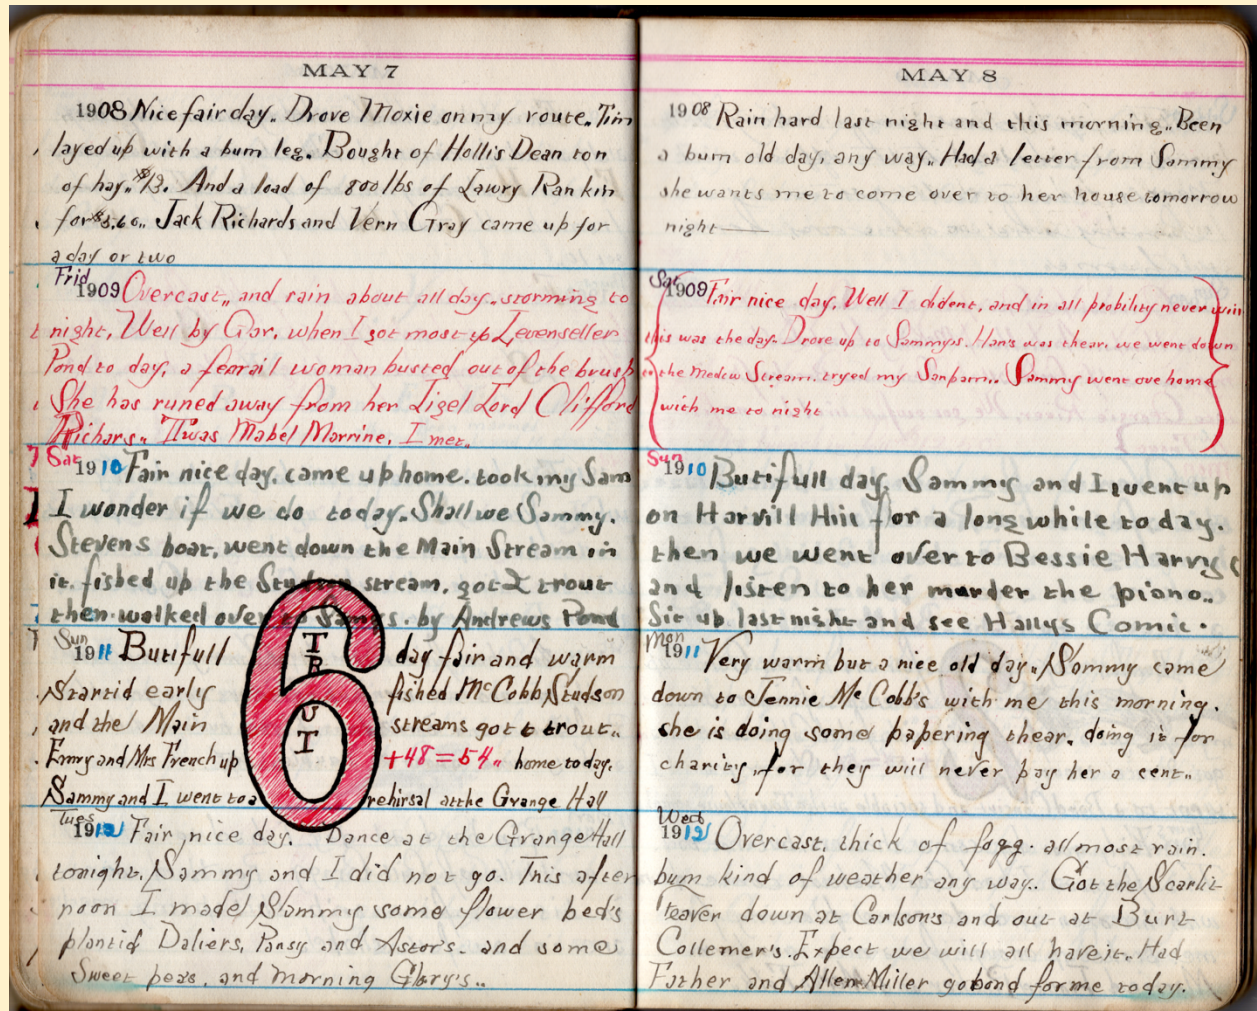 MAY 7
1908 Nice fair day. Drove Moxie on my route. Tim
layed up with a bum leg. Bought of Hollis Dean ton
of hay. $13. And a load of 800 lbs of Lawry Rankin
for $5.60. Jack Richards and Vern Gray came up for
a day or two
Frid
1909 Overcast, and rain about all day. storming to
night, Well by Gor, when I got most up Levenseller
Pond to day, a fearail woman busted out of the brush
She has runed away from her Ligel Lord Clifford
Richars. Twas Mabel Marrine, I met.
Sat
1910 Fair nice day. came up home. took my Sam
I wonder if we do today. Shall we Sammy.
Stevens boat, went down the Main Stream in
it. fished up the Studson stream. got 2 trout
then walked over to by Andrews Pond
Sun
1911 Butifull day fair and warm
Startid early fished McCobb, Studson
and the Main streams got 6 trout..
Emry and Mrs French up +48=54.. home today.
Sammy and I went to a rehirsal at the Grange Hall
6
TROUT
Tues
1912 Fair, nice day. Dance at the Grange Hall
tonight, Sammy and I did not go. This after
noon I made Sammy some flower bed's
plantid Daliers, Pansy and Astor's. and some
Sweet peas, and Morning Glory's..
MAY 8
1908 Rain hard last night and this morning.. Been
a bum old day, any way.. Had a letter from Sammy
she wants me to come over to her house tomorrow
night
Sat
1909 Fair nice day, Well I dident, and in all probility never will
this was the day. Drove up to Sammy's. Han's was thear. we went down
to the Medow Stream. tryed my Sanparn.. Sammy went ove home
with me to night
Sun
1910 Butifull day. Sammy and I went up
on Harvill Hill for a long while to day.
then we went over to Bessie Harvys
and listen to her murder the piano..
Sit up last night and see Hallys Comic.
Mon
1911 Very warm but a nice old day.. Sammy came
down to Jennie Mc Cobb's with me this morning.
she is doing some papering thear. doing it for
charity, for they will never pay her a cent..
Wed
1912 Overcast, thick of fogg. allmost rain.
bum kind of weather any way.. Got the Scarlit
feaver down at Carlson's and out at Burt
Collemer's. Expect we will all have it. Had
Father and Allen Miller go bond for me today.